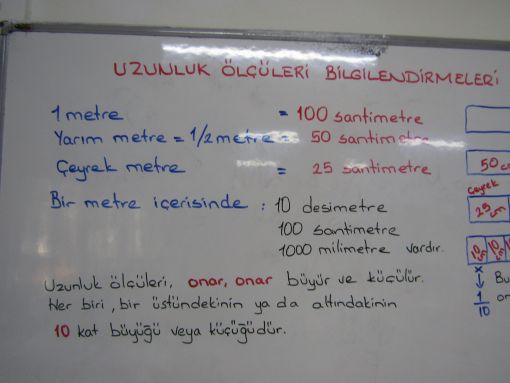 UZUNLUK ÖLÇÜLERİ BİLGİLENDİRMELERİ
1 metre = 100 santimetre
Yarım metre = 1/2 metre = 50 santimetre
Çeyrek metre = 25 santimetre
Bir metre içerisinde : 10 desimetre
100 santimetre
1000 milimetre vardır.
Uzunluk ölçüleri, onar, onar büyür ve küçülür.
Her biri, bir üstündekinin ya da altındakinin
10 kat büyüğü veya küçüğüdür.
50 cm
Çeyrek
25 cm
10 cm 10 cm
x
↓ Bu
1/10 on